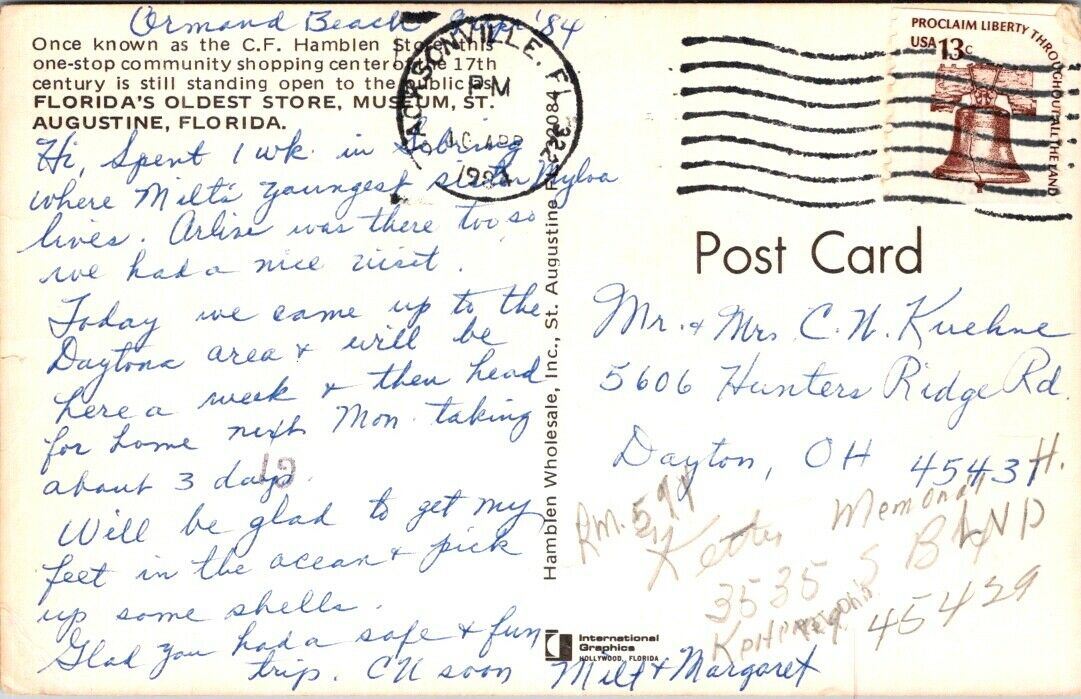 Ormand Beach 9 Apr '84
Once known as the C.F. Hamblen Store, this
one-stop community shopping center of the 17th
century is still standing open to the public as
FLORIDA'S OLDEST STORE, MUSEUM, ST.
AUGUSTINE, FLORIDA.
Hi, Spent 1 wk. in Sebring
where Milt's youngest sister
lives. Arlise was there too so
we had a nice visit.
Today we came up to the
Daytona area & will be
here a week & then head
for home next Mon. taking
about 3 days.
Will be glad to get my
feet in the ocean & pick
up some shells.
Glad you had a safe & fun
trip. CU soon Milt & Margaret
Hamblen Wholesale, Inc., St. Augustine
International
Graphics
HOLLYWOOD, FLORIDA
JACKSONVILLE, FL
PM
APR
1984
PROCLAIM LIBERTY THROUGHOUT ALL THE LAND
USA 13c
Post Card
Mr. & Mrs C. N. Kuehne
5606 Hunters Ridge Rd.
Dayton, OH 45431
Rm. 591
Memorial H.
3535 S BLVD
45429